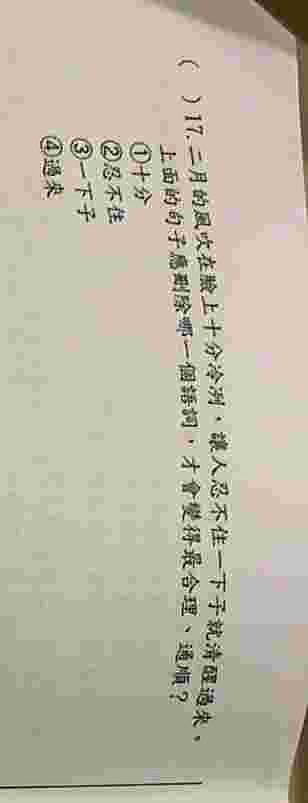 ( )17.二月的風吹在臉上十分冷冽，讓人忍不住一下子就清醒過來。
上面的句子應刪除哪一個語詞，才會變得最合理、通順？
①十分
②忍不住
③一下子
④過來